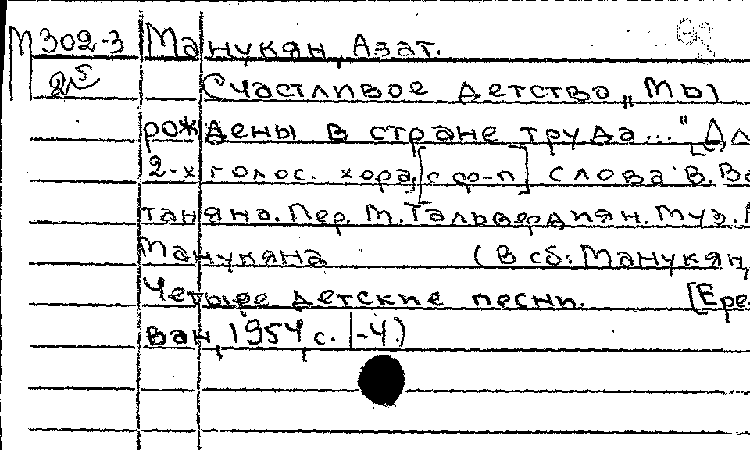 М 302-3 Манукян, Азат.
Счастливое детство „Мы
рождены в стране труда..." Дл
2-х голос. хора, [с ф-п] слова В. Ва
таняна. Пер. М. Тальвердиян. Муз.
Манукяна (В сб: Манукян,
Четыре детские песни. [Ере
ван, 1954, с. 1-4)